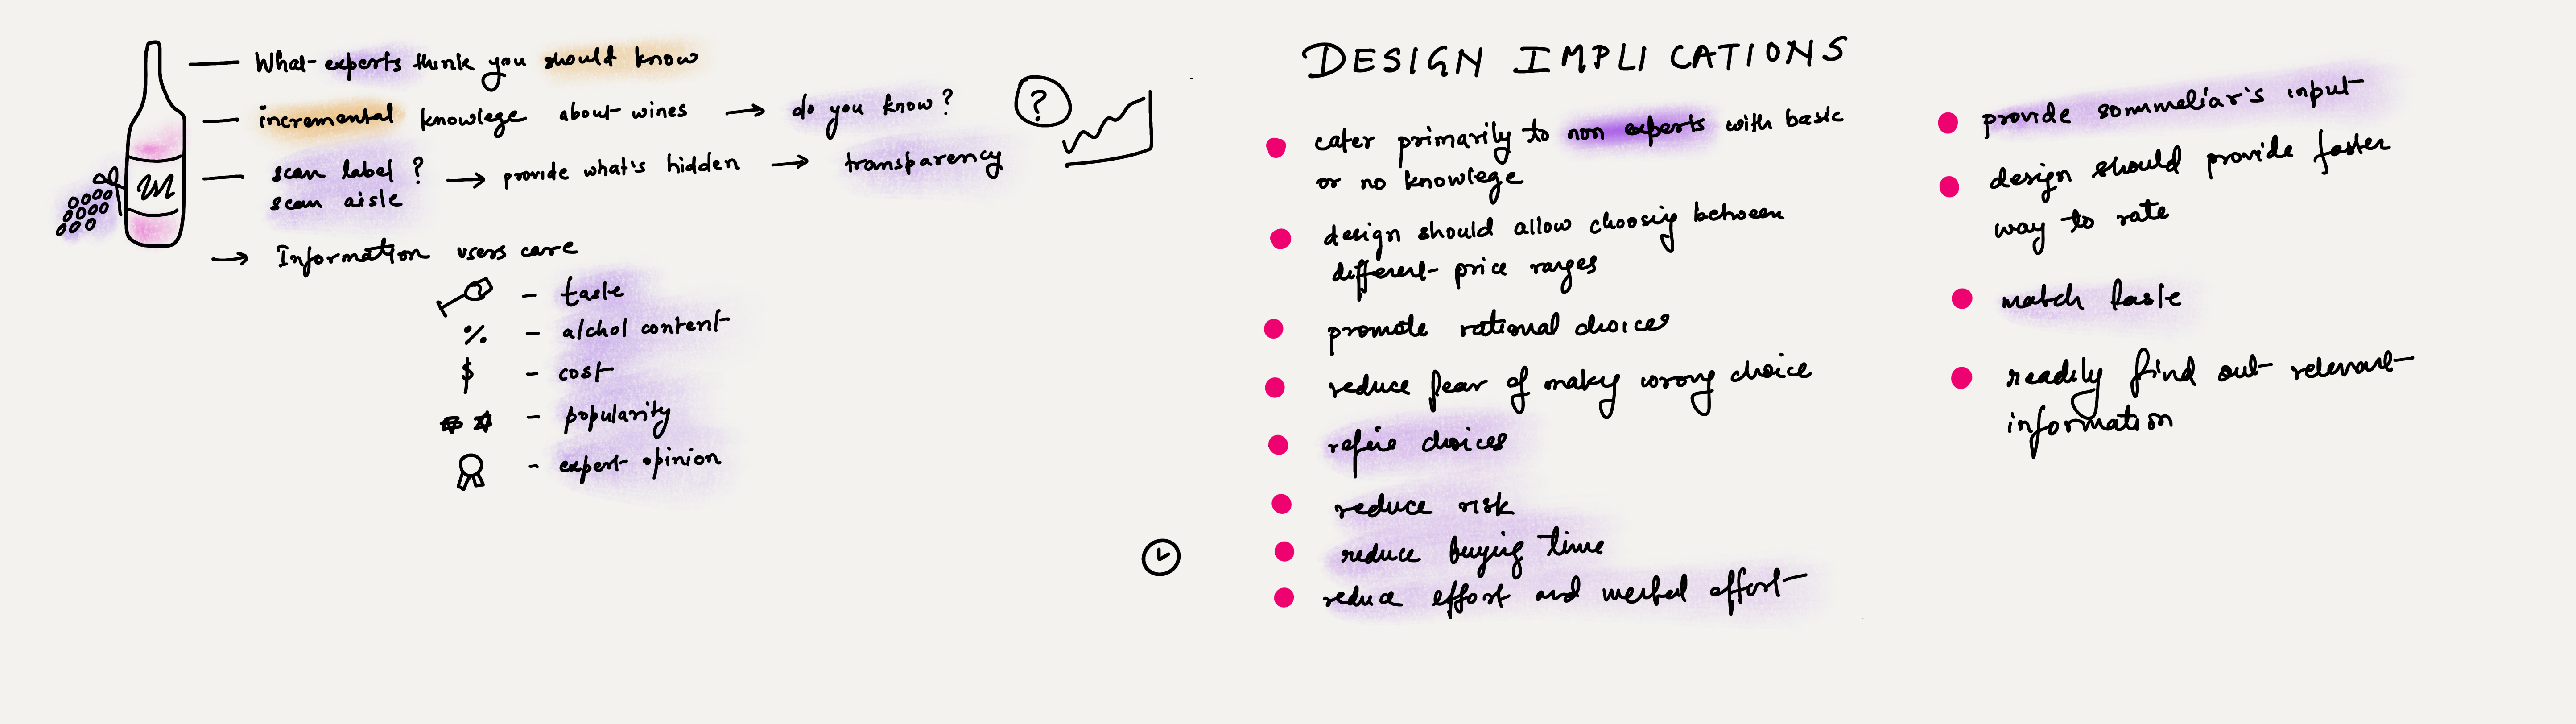 What experts think you should know
incremental knowlege about wines → do you know?
?
scan label ?
scan aisle
→ provide what's hidden → transparency
→ Information users care
- taste
% - alchol content
$ - cost
- popularity
- expert opinion
DESIGN IMPLICATIONS
cater primarily to non experts with basic
or no knowlege
design should allow choosing between
different price ranges
promote rational choices
reduce fear of making wrong choice
refine choices
reduce risk
reduce buying time
reduce effort and mental effort
provide sommeliar's input
design should provide faster
way to rate
match taste
readily find out relevant
information